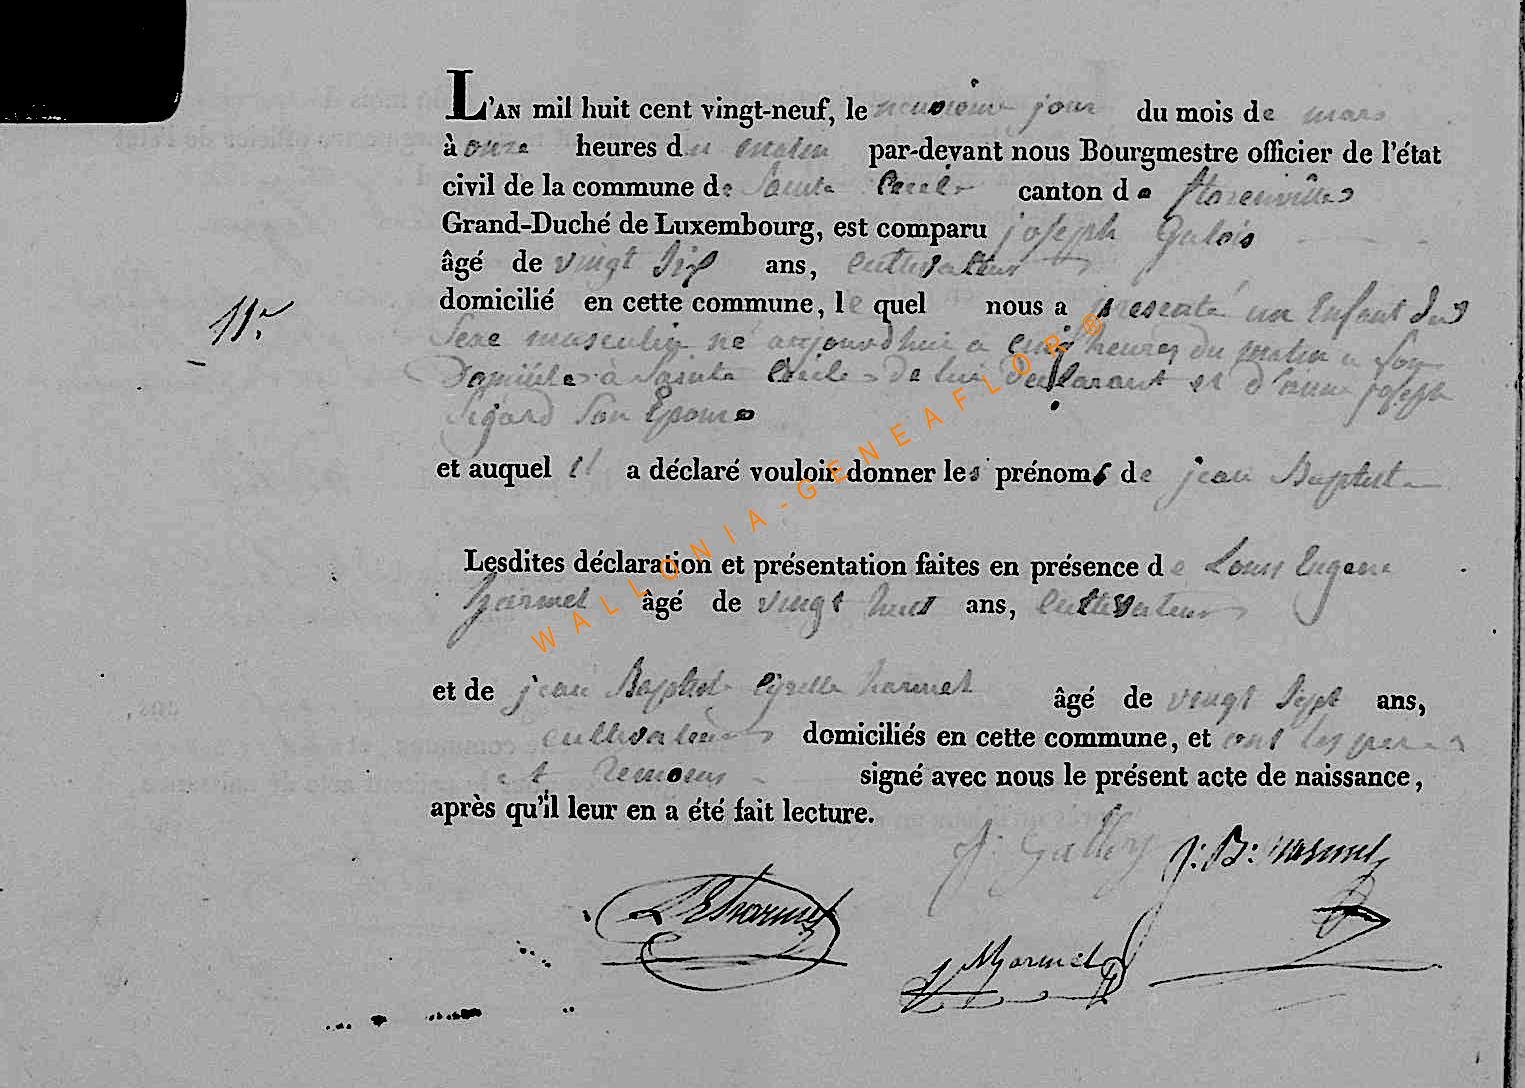 L'AN mil huit cent vingt-neuf, le neuvieme jour du mois de mars
à onze heures du matin par-devant nous Bourgmestre officier de l'état
civil de la commune de Sainte Cecile canton de florenville
Grand-Duché de Luxembourg, est comparu joseph Galois
âgé de vingt Six ans, Cultivateur
domicilié en cette commune, le quel nous a presenté un Enfant du
11.
Sexe masculin né aujourdhui a cinq heures du matin a Son
Domicile à Sainte Cecile de lui declarant et d'anne joseph
Sigard Son Epouse
et auquel il a déclaré vouloir donner les prénoms de jean Baptiste
WALLONIA-GENEAFLOR®
Lesdites déclaration et présentation faites en présence de Louis Eugene
harmel âgé de vingt huit ans, Cultivateur
et de jean Baptiste harmel âgé de vingt Sept ans,
cultivateurs domiciliés en cette commune, et ont les peres
et temoins signé avec nous le présent acte de naissance,
après qu'il leur en a été fait lecture.
J: B: harmel
LE harmel
harmel